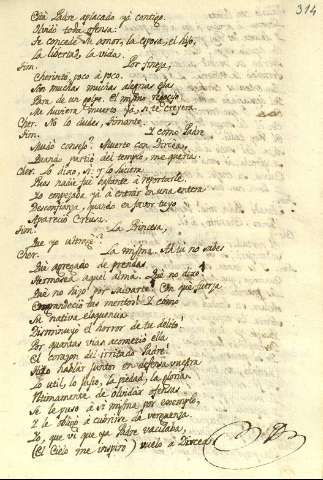 314
Está Padre aplacado yá contigo.
Olvidó toda ofensa:
Te concede su amor, la esposa, el hijo,
La libertad, la vida.
Tim. Por fineza,
Cherinto, poco á poco.
Son muchas muchas alegrias esas
Para de un golpe. El mismo regocijo
Me huviera muerto ya, si te creyera
Cher. No lo dudes, Timante.
Tim. I como Padre
Mudó consejo? Muerte con Dircea,
Quando partió del templo, me queria.
Cher. Lo dixo, si; y lo hiciera
Pues nadie fué bastante á reportarle.
Yo empezaba yá á entrar en una entera
Desconfianza, quando en favor tuyo
Apareció Creusa.
Tim. La Princesa,
Que yo
Cher. La misma. Ah tu no sabes
Qué agregado de prendas
Hermoséa aquel alma. Qué no dixo?
Qué no hizo por salvarte? Con qué fuerza
Engrandeció tus meritos! I como
Su nativa eloquencia
Disminuyó el horror de tu delito!
Por quantas vias acometió ella
El corazon del irritado Padre!
Hizo hablar juntos en defensa vuestra
Lo util, lo justo, la piedad, la gloria
Ultimamente de olvidar ofensas
Se le puso á sí misma por exemplo,
I le obligó á cubrirse de verguenza
Yo, que ví que ya Padre vacilaba,
(El Cielo me inspiró) vuelo á Dircea